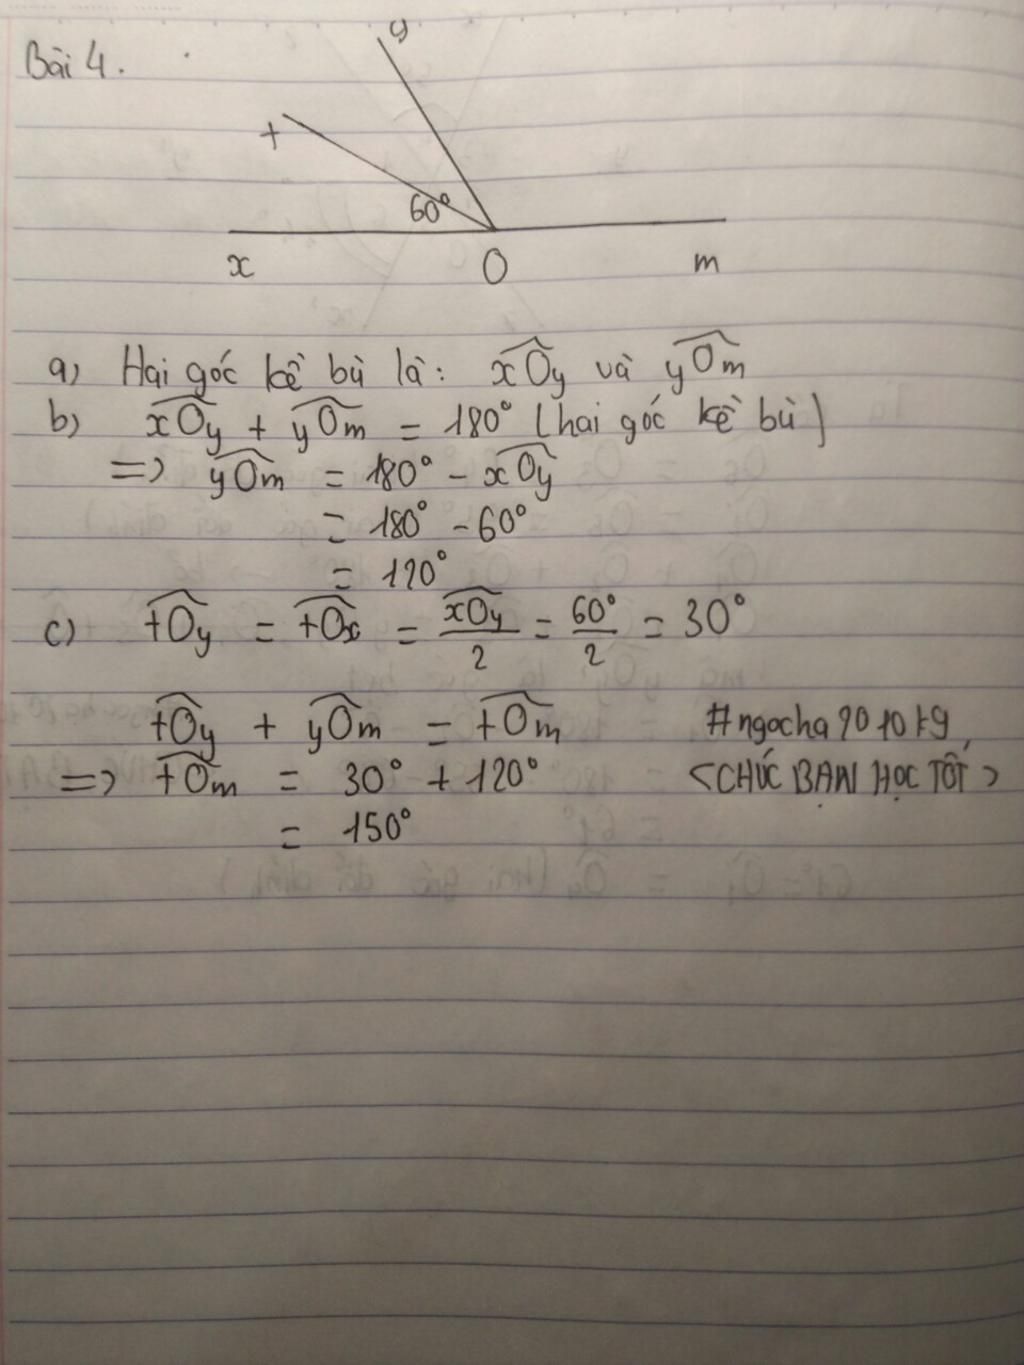 Bài 4.
y
t
60°
x O m
a) Hai góc kề bù là: xOy và yOm
b) xOy + yOm = 180° (hai góc kề bù)
=> yOm = 180° - xOy
= 180° - 60°
= 120°
c) tOy = tOx = xOy/2 = 60°/2 = 30°
tOy + yOm = tOm #ngocha2010kg
=> tOm = 30° + 120° <CHÚC BẠN HỌC TỐT>
= 150°